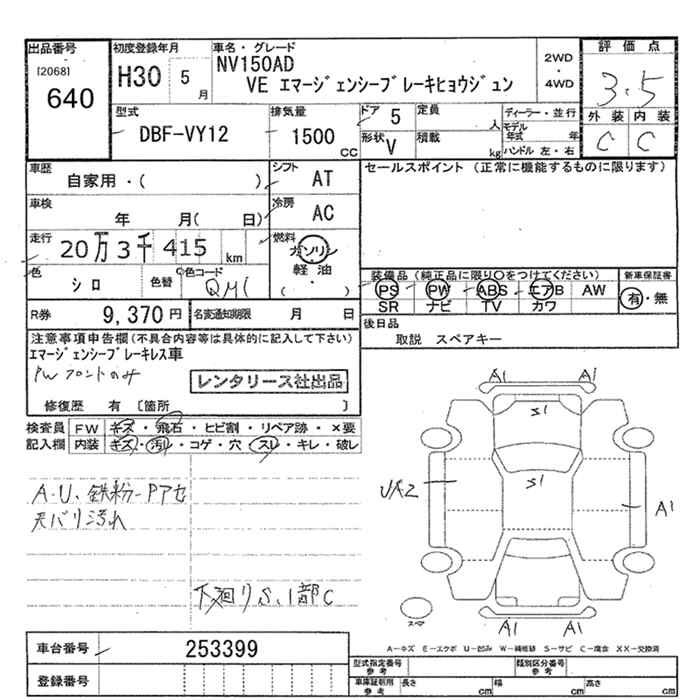 出品番号 初度登録年月 車名・グレード 評価点
[2068] NV150AD 2WD
640 H30 5月 VE エマージェンシーブレーキヒョウジュン ・ 3.5
4WD
型式 排気量 ドア 5 定員 人 ディーラー・並行 外装 内装
DBF-VY12 1500 CC 形状 V 積載 kg モデル年式 年 C C
ハンドル 左・右
車歴 自家用・( ) シフト AT セールスポイント (正常に機能するものに限ります)
車検 年 月( 日) 冷房 AC
走行 20万3千415 km 燃料 ガソリン
軽油
( ・ )
色 シロ 色替 色コード QM1
装備品 (純正品に限り○をつけてください) 新車保証書
PS PW ABS エアB AW 有・無
SR ナビ TV カワ
R券 9,370円 名変通知期限 月 日 後日品
取説 スペアキー
注意事項申告欄(不具合内容等は具体的に記入して下さい)
エマージェンシーブレーキレス車
PWフロントのみ
レンタリース社出品
修復歴 有 〔箇所 〕
検査員 FW キズ・飛石・ヒビ割・リペア跡・×要
記入欄 内装 キズ・汚れ・コゲ・穴・スレ・キレ・破レ
A1 A1
S1
S1
A1
A1 A1
A・U、鉄粉
天バリ汚れ
下廻りS、1部C
スペア
A-キズ E-エクボ U-凹み W-補修跡 S-サビ C-腐食 XX-交換済
車台番号 253399
登録番号
型式指定番号 参考 類別区分番号 参考
車庫証明用 参考 長さ cm 幅 cm 高さ cm